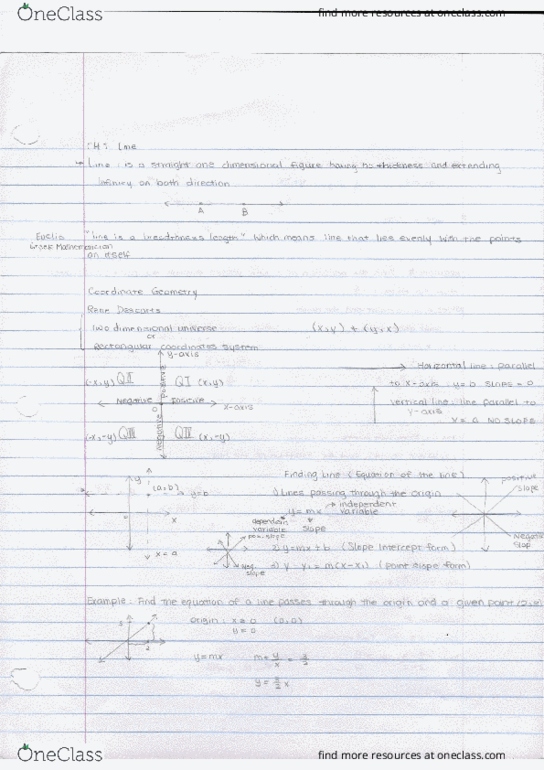 OneClass
find more resources at oneclass.com
Line
Line : is a straight one dimensional figure having no thickness and extending
infinity on both direction
A B
"line is a breadthless length" which means line that lies evenly with the points
on itself
Coordinate Geometry
Rene
two dimensional universe (x,y) ≠ (y,x)
or
Rectangular coordinates system
y-axis
Horizontal line : parallel
(-x,y) QII QI (x,y)
to x-axis y=0 slope = 0
Positive
Negative 0 Positive x-axis
vertical line : line parallel to
y-axis
Negative
x = a NO SLOPE
(-x,-y) QIII (x,-y)
Finding Line (Equation of the line)
y
positive
slope
(a,b) y=b
1) Lines passing through the origin
independent
y = mx variable
dependent
variable slope
x
pos. slope
x = a
2) y=mx+b (Slope Intercept form)
Neg.
slope
y - y₁ = m(x-x₁) (point slope form)
Example : Find the equation of a line passes through the origin and a given point
origin : x = 0 (0,0)
y = 0
2
y=mx m= y/x =
OneClass
find more resources at oneclass.com